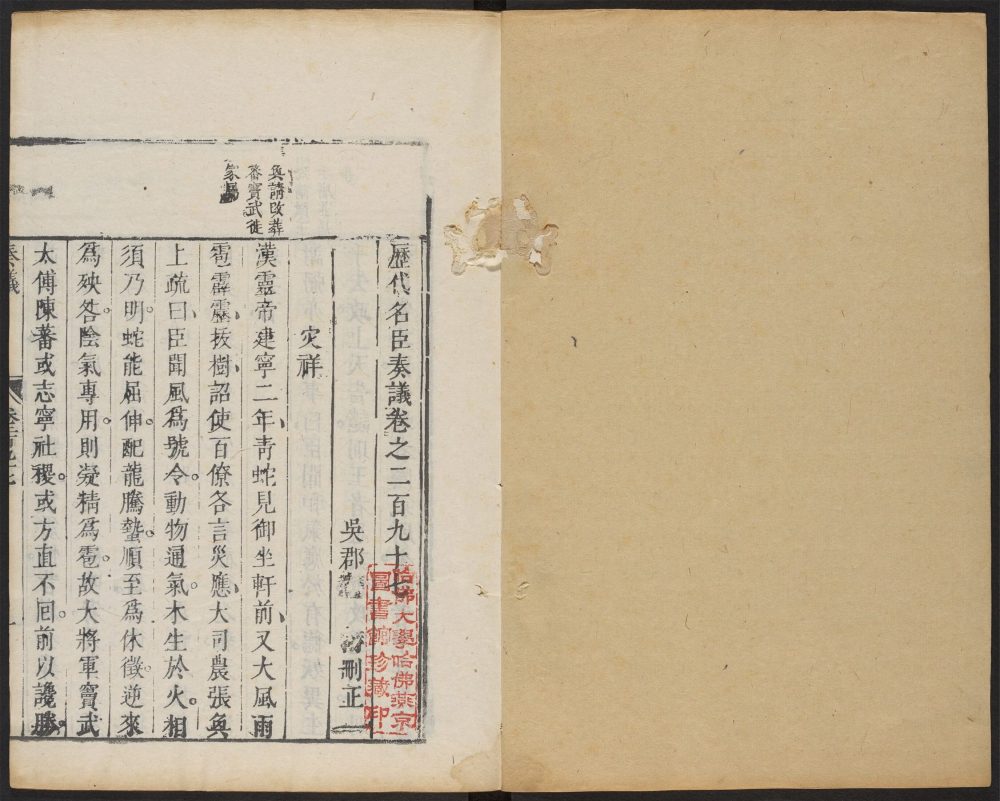 歷代名臣奏議卷之二百九十七
吳郡 刪正
災祥
漢靈帝建寧二年青蛇見御坐軒前又大風雨
雹霹靂拔樹詔使百僚各言災應大司農張奐
上疏曰臣聞風爲號令。動物通氣。木生於火。相
須乃明。蛇能屈伸。配龍騰蟄。順至爲休徵。逆來
爲殃咎。陰氣專用。則凝精爲雹。故大將軍竇武
太傅陳蕃或志寧社稷。或方直不回。前以讒勝。
奏議
奐請改葬
蕃竇武徙
家屬
哈佛大學哈佛燕京
圖書館珍藏印